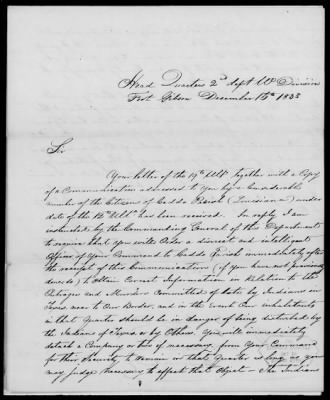 Head Quarters 2d Dept Wn Division
Fort Gibson December 16th 1833
Sir
Your letter of the 19th Ulto together with a Copy
of a Communication addressed to you by a Considerable
number of the Citizens of Caddo Parish (Louisiana) under
date of the 12th Ulto has been received. In reply I am
instructed by the Commanding General of this Department
to require that you will Order a discreet and intelligent
Officer of your Command to Caddo Parish immediately after
the receipt of this Communication (if you have not previously
done so) to Obtain Correct Information in Relation to the
Outrages and Murders Committed of late by Indians in
Texas near to Our Border, and in the event Our inhabitants
in that Quarter should be in danger of being disturbed by
the Indians of Texas or by Others, You will immediately
detach a Company or two if necessary from Your Command
for their Security to remain in that Quarter as long as you
may judge necessary to effect that Object. The Indians